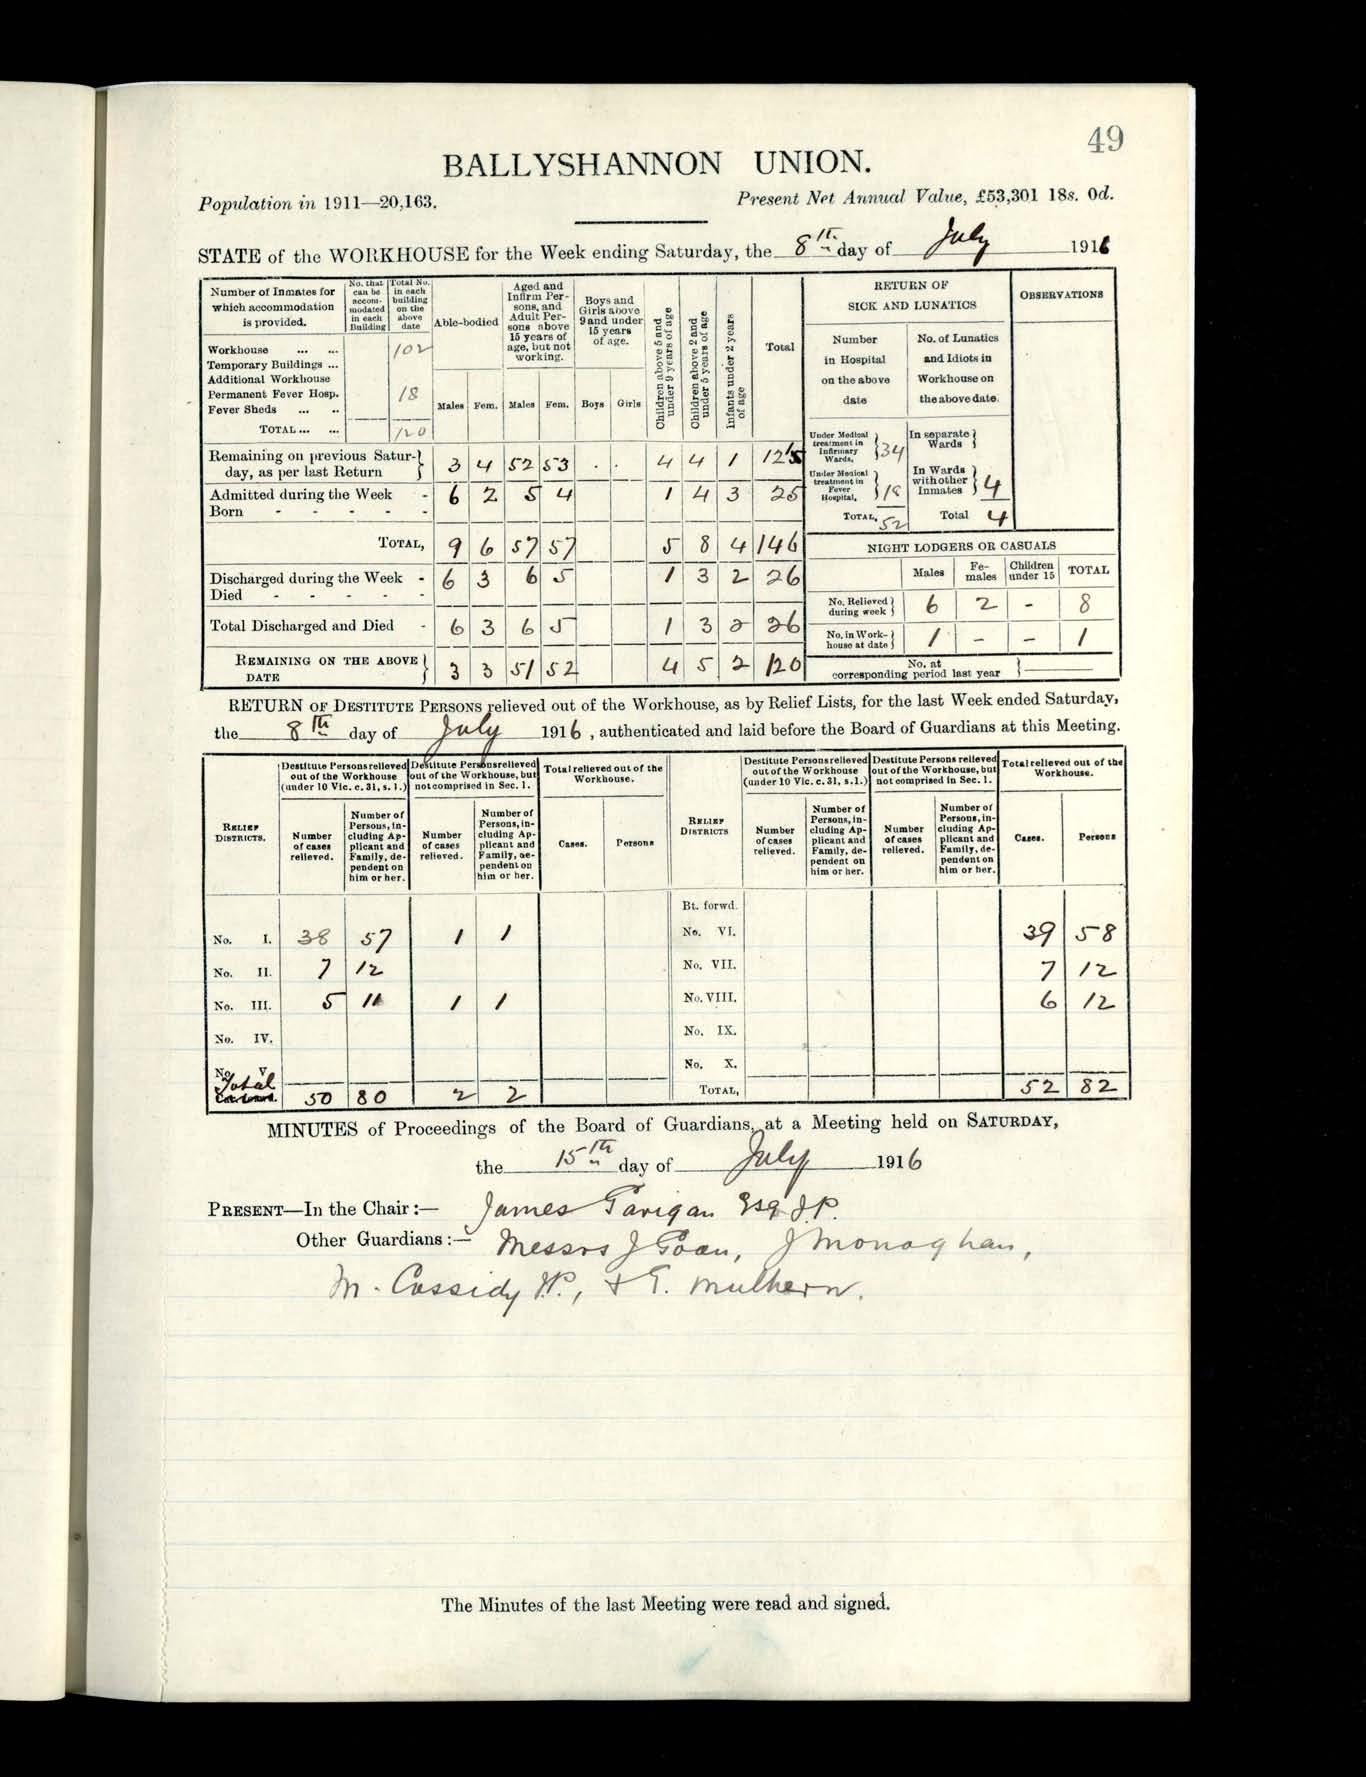 49
BALLYSHANNON UNION.
Population in 1911—20,163. Present Net Annual Value, £53,301 18s. 0d.
STATE of the WORKHOUSE for the Week ending Saturday, the 8th day of July 1916
Number of Inmates for which accommodation is provided. No. that can be accommodated in each Building Total No. in each building on the above date
Able-bodied Aged and Infirm Persons, and Adult Persons above 15 years of age, but not working. Boys and Girls above 9 and under 15 years of age. Children above 5 and under 9 years of age Children above 2 and under 5 years of age Infants under 2 years of age Total
Males Fem. Males Fem. Boys Girls
Workhouse ... ... 102
Temporary Buildings ...
Additional Workhouse
Permanent Fever Hosp. 18
Fever Sheds ... ..
TOTAL ... ... 120
Remaining on previous Saturday, as per last Return 3 4 52 53 . . 4 4 1
Admitted during the Week - 6 2 5 4 1 4 3 25
Born - - - - -
TOTAL, 9 6 57 57 5 8 4 146
Discharged during the Week - 6 3 6 5 1 3 2 26
Died - - - - -
Total Discharged and Died - 6 3 6 5 1 3 2 26
REMAINING ON THE ABOVE DATE 3 3 51 52 4 5 2 120
RETURN OF SICK AND LUNATICS
Number in Hospital on the above date No. of Lunatics and Idiots in Workhouse on the above date.
Under Medical treatment in Infirmary Wards, 34 In separate Wards
Under Medical treatment in Fever Hospital, 18 In Wards with other Inmates 4
TOTAL, 52 Total 4
OBSERVATIONS
NIGHT LODGERS OR CASUALS
Males Females Children under 15 TOTAL
No. Relieved during week 6 2 - 8
No. in Workhouse at date 1 - - 1
No. at corresponding period last year
RETURN OF DESTITUTE PERSONS relieved out of the Workhouse, as by Relief Lists, for the last Week ended Saturday,
the 8th day of July 1916, authenticated and laid before the Board of Guardians at this Meeting.
RELIEF DISTRICTS. Destitute Persons relieved out of the Workhouse (under 10 Vic. c. 31, s. 1.) Destitute Persons relieved out of the Workhouse, but not comprised in Sec. 1. Total relieved out of the Workhouse.
Number of cases relieved. Number of Persons, including Applicant and Family, dependent on him or her. Number of cases relieved. Number of Persons, including Applicant and Family, dependent on him or her. Cases. Persons
RELIEF DISTRICTS Destitute Persons relieved out of the Workhouse (under 10 Vic. c. 31, s.1.) Destitute Persons relieved out of the Workhouse, but not comprised in Sec. 1. Total relieved out of the Workhouse.
Number of cases relieved. Number of Persons, including Applicant and Family, dependent on him or her. Number of cases relieved. Number of Persons, including Applicant and Family, dependent on him or her. Cases. Persons
Bt. forwd.
No. I. 38 57 1 1 No. VI. 39 58
No. II. 7 12 No. VII. 7 12
No. III. 5 11 1 1 No. VIII. 6 12
No. IV. No. IX.
No. V No. X.
Total 50 80 2 2 TOTAL, 52 82
MINUTES of Proceedings of the Board of Guardians, at a Meeting held on SATURDAY,
the 15th day of July 1916
PRESENT—In the Chair:— James Gavigan Esq J.P.
Other Guardians:— Messrs J Goan, J Monaghan,
M. Cassidy J.P., & T. Mulhern.
The Minutes of the last Meeting were read and signed.